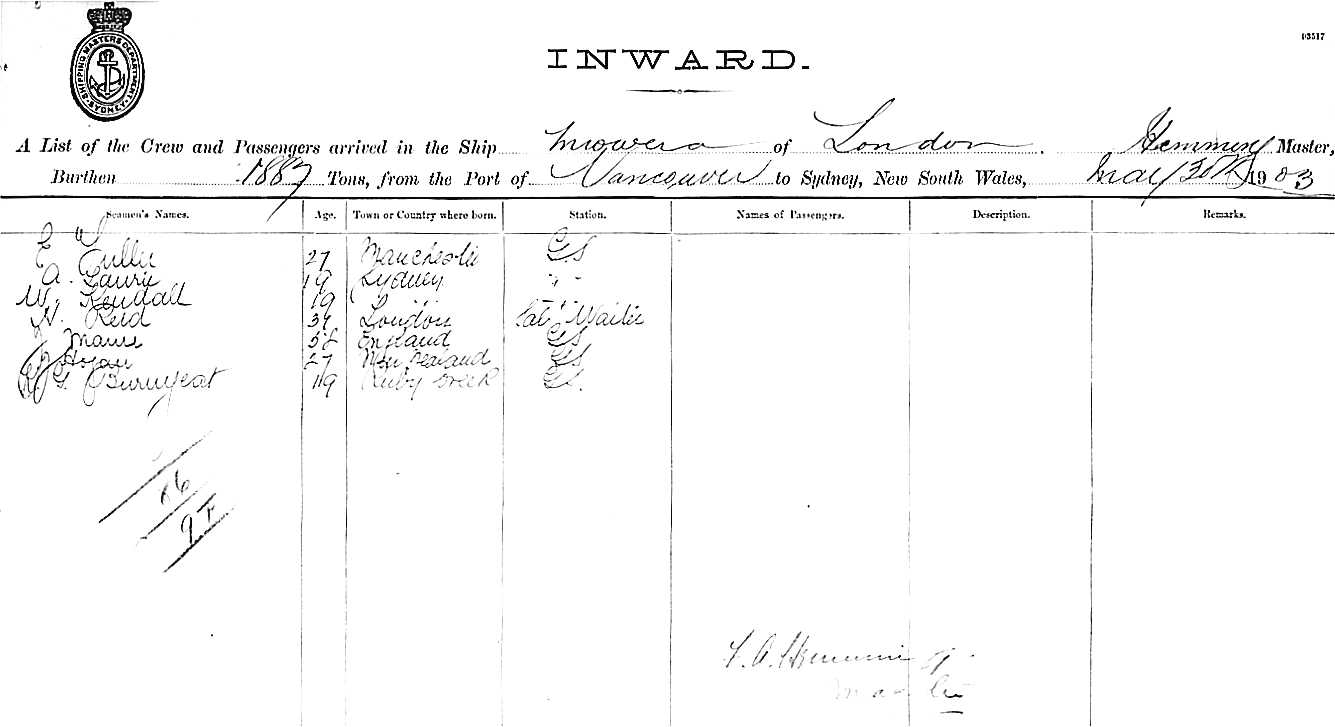 SHIPPING MASTERS DEPARTMENT SYDNEY
03517
INWARD.
A List of the Crew and Passengers arrived in the Ship Mowera of London. Hemming Master,
Burthen 1887 Tons, from the Port of Vancouver to Sydney, New South Wales, May 30th 1903
Seamen's Names. Age. Town or Country where born. Station. Names of Passengers. Description. Remarks.
E 27 Manchester G.S
A. Laurie 19 Sydney " "
W. Kendall 19 " "
H. Reid 39 London Waiter
England GS
J Hogan 27 New Zealand GS
R. G. Burnyeat 19 Ruby Creek GS.
F. A. Hemming
Master